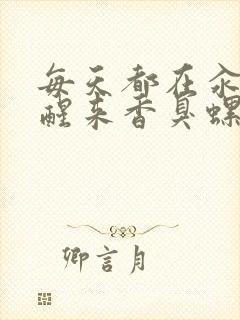 每天都在汆
醒来香臭螺
卿言月